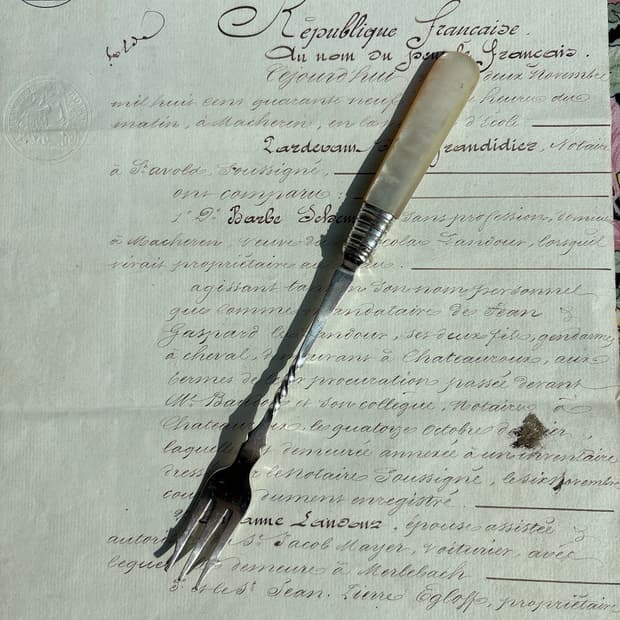 Solde
République française.
Au nom du peuple français.
Cejourd'hui deux Novembre
mil huit cent quarante neuf heures du
matin, à Macheren, en la d'École
Pardevant Grandidier, Notaire
à St. avold, soussigné,
ont comparu:
1° De. Barbe sans profession, demeur
à Macheren, veuve de Nicolas Landour, lorsqu'il
vivait propriétaire au
agissant tant en son nom personnel
que comme mandataire de Jean
Gaspard Landour, ses deux fils, gendarme
à cheval, demeurant à Chateauroux, aux
termes de leur procuration passée devant
Me. et son collègue, Notaires à
Chateauroux, le quatorze Octobre dernier
laquelle demeurée annexée à un inventaire
dressé par le Notaire Soussigné, le six Novembre
courant, dument enregistré.
anne Landour, épouse assistée
autorisée St. Jacob Mayer, voiturier, avec
lequel demeure à Merlebach
3° et le St. Jean Pierre Egloff, propriétaire